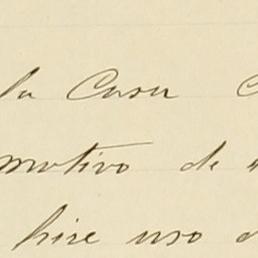 la Casa
motivo de
hise uso